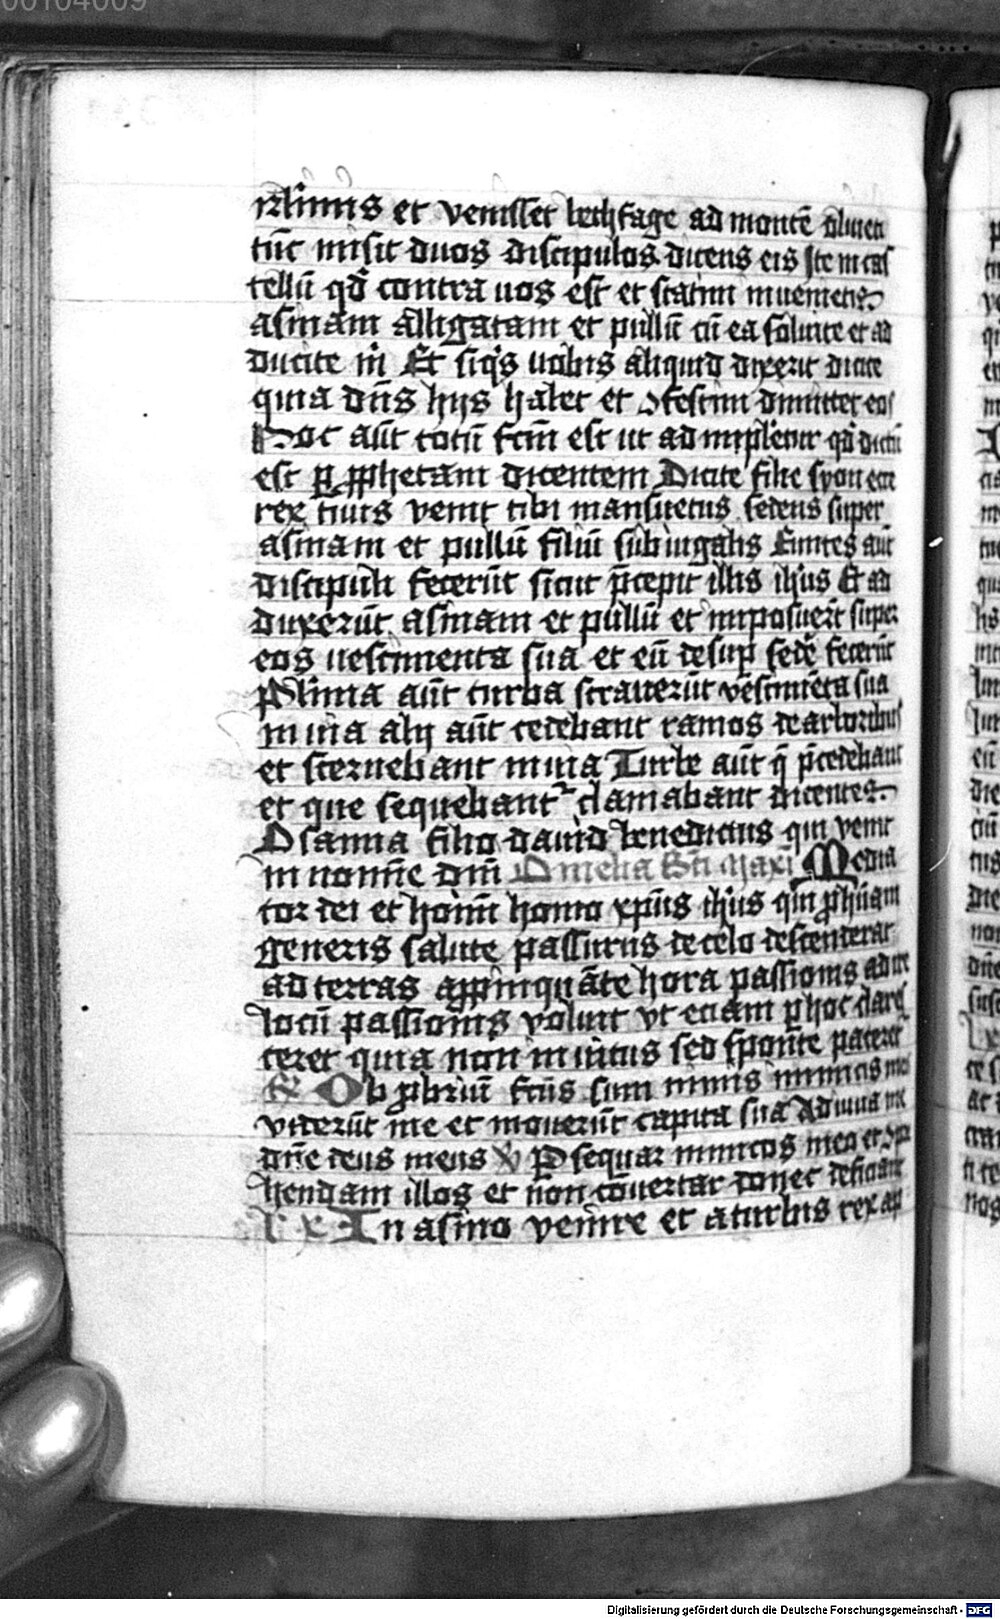 00104009
irl̄imis et venisset bethfage ad montē oliueti
tūc misit duos discipulos dicens eis Ite in cas
tellū qd̄ contra uos est et statim inuenietis
asinam alligatam et pullū cū ea soluite et ad
ducite m̄ Et siqͥs uobis aliquid dixerit dicite
quia dn̄s hijs habet et ꝯfestim dimittet eos
Hoc aūt totū fcm̄ est ut adimpletur qd̄ dictū
est ꝑ ꝓphetam dicentem Dicite filie syon ecce
rex tuus venit tibi mansuetus sedens super
asinam et pullū filiū subiugalis Euntes aūt
discipuli fecerūt sicut p̄cepit illis ihūs Et ad
duxerūt asinam et pullū et imposuerūt super
eos uestimenta sua et eū desup sedē fecerūt
Pl̄ima aūt turba strauerūt vestimēta sua
in uia alij aūt cedebant ramos de arboribus
et sternebant in uia Turbe aūt q̄ p̄cedebant
et que sequebant᷑ clamabant dicentes
Osanna filio dauid benedictus qui venit
in nomīe dnī Omelia Sc̄i Maxī Media
tor dei et homīm homo xp̄us ihūs qui ꝓ hūani
generis salute passurus de celo descenderat
ad terras appinquāte hora passionis ad ire
locū passionis voluit vt etiam ꝑ hoc clares
ceret quia non inuitus sed spont̄e pateret᷑
R Obꝓbriū fc̄us sum nimis inimicis meis
viderūt me et mouerūt capita sua Adiuua me
dn̄e deus meus V Psequar inimicos meos et ꝯpre
hendam illos et non cōuertar donec deficiant
In asino venire et a turbis rex ap
Digitalisierung gefördert durch die Deutsche Forschungsgemeinschaft - DFG